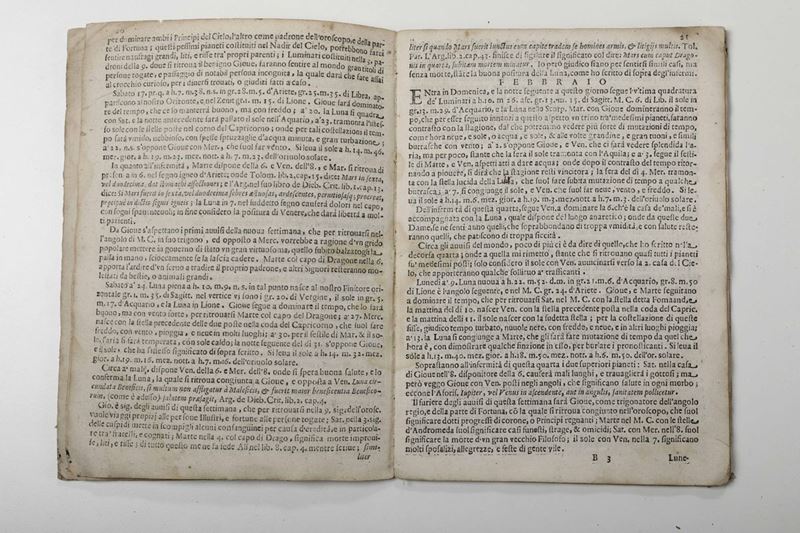 20
per dominare ambi i Principi del Cielo, l'altro come padrone dell'oroscopo, e della parte
di Fortuna; questi pessimi pianeti costituiti nel Nadir del Cielo, potrebbono farci
sentire naufragi grandi, liti, e risse tra' proprj parenti; i Luminari costituiti nella 3. pa-
droni della 9. doue si ritroua il beragio Gioue, faranno sentire al mondo gran titoli di
persone togate, e passaggio di notabil persona incognita, la quale darà che fare assai
al crocchio curioso, per i diuersi trouati, o giudizi fatti a caso.
Sabato 17. pr. q. a h. 7. m. 58. n. s. in gr. 28. m. 5. d'Ariete, gr. 25. m. 35. di Libra, ap-
pariscono al nostro Orizonte, e nel Zenit gr. m. 15. di Lione. Gioue sarà dominato-
re del tempo, che ce lo manterrà buono, ma con freddo; a' 20. la Luna si quadra
con Sat. e la notte antecedente sarà passato il sole nell'Aquario, a' 23. tramonta l'istes-
so sole con le stelle poste nel corno del Capricorno; onde per tali costellazioni il tem-
po sarà vmido, nebbioso, con spesse spruzzaglie d'acqua minuta, e gran turbazione;
a' 22. n. s. s'oppone Gioue con Mer., che suol far vento. Si leua il sole a h. 14. m. 46.
mer. gior. a h. 19. m. 23. mez. nott. a h. 7. m. 23. dell'oriuolo solare.
In quanto all'infermità, Marte dispone della 6. e Ven. dell'8., e Mar. si ritroua di
presen. a in 6. nel segno igneo d'Ariete; onde Tolom. lib. 2. cap. 15. dice Mars in sexta,
vel duodecima, dat stimulos assessores; e l'Argend suo libro de Dieb. Crit. lib. 1. cap. 13.
dice Si Mars fuerit in sexta, vel duodecima solent adustas, ardescentes, parotinosas; procreat,
præcipuè in dictis signis igneis; la Luna in 7. nel suddetto segno causerà dolori nel capo,
con sogni spauentuoli; in fine considero la positura di Venere, che darà libertà a mol-
ti pazienti.
Da Gioue s'aspettano i primi auuisi della nuoua settimana, che per ritrouarsi nel-
l'angolo di M. C. in suo trigono, ed opposto a Merc. vorrebbe a ragione d'vn grido
popolare mettere in gouerno di stato vn gran virtuosoma, quello subito balzatogli la
palla in mano, scioccamente se la lascia cadere. Marte col capo del Dragone nella 6.
apporta l'ardire d'vn seruo a tradire il proprio padrone, e altri signori resteranno mo-
lestati da bestie, o animali grandi.
Sabato a' 24. Luna piena a h. 10. m. 9. n. s. in tal punto nasce al nostro Finitore ori-
zontale gr. 1. m. 35. di Sagit. nel vertice vi sono i gr. 20. di Vergine, il sole in gr. 5.
m. 17. d'Acquario, e la Luna in Lione. Gioue segue a dominare il tempo, che lo farà
buono, ma con vento forte, per ritrouarsi Marte col capo del Dragone; a' 27. Merc.
nasce con la stella precedente delle due poste nella coda del Capricorno, che suol far
freddo, con vento, pioggia, e neue in molti luoghi; a' 30. per il sestile di Mar. & il so-
le, sarà si farà temperata, con sole caldo; la notte seguente del di 31. s'oppone Gioue,
e 'l sole, che hà l'istesso significato di sopra scritto. Si leua il sole a h. 14. m. 32. mez.
gior. a h. 19. m. 16. mez. nott. a h. 7. m. 16. dell'oriuolo solare.
Circa a' mali, dispone Ven. della 6. e Mer. dell'8. onde si spera buona salute, e lo
conferma la Luna, la quale si ritroua congiunta a Gioue, e opposta a Ven. Luna cir-
cundata Beneficis, si malum non assegatur à Maleficis, & fuerit maior beneficentia Benefico-
rum, (come è adesso) salutem præsagit, Arg. de Dieb. Crit. lib. 1. cap. 4.
Gio. è sig. degli auuisi di questa settimana, che per ritrouarsi nella 9. sig. dell'orosc.
vuole viaggi proprj alle persone Illustri, e fortune alle persone togate; Sat. nella 3. sig.
delle cuspidi mette in scompigli alcuni consanguinei per causa d'eredità, e in particola-
re tra' fratelli, e cognati; Marte nella 4. col capo di Drago, significa morte improui-
se, liti, e risse; di tutto questo me ne fa fede Alì nel lib. 8. cap. 4. mentre scriue; simi-
liter
21
liter si quando Mars fuerit iunctus cum capite tradeis se homines armis, & litigijs multis. Tol.
Par. L'Arg. lib. 2. cap. 43. finisce di sigillare il significato col dire: Mars cum caput Drago-
nis in quarta, subitam mortem minatur. Io però giudico siano per sentirsi simili casi, ma
senza morte, stāte la buona positura della Luna, come hò scritto di sopra degl'infermi.
FEBBRAIO
ENtra in Domenica, e la notte seguente a questo giorno segue l'vltima quadratura
de' Luminari a h. 10. m. 26. asc. gr. 13. m. 15. di Sagitt. M. C. 6. di Lib. il sole in
gr. 13. m. 24. d'Acquario, e la Luna nello Scorp. Mar. con Gioue domineranno il tem-
po, che per esser seguito innanzi a questo aspetto vn trino tra' medesimi pianeti, saranno
contrasto con la stagione, dal che potremo vedere più sorte di mutazioni di tempo,
come hora neue, e sole, o acqua, e sole, & alle volte grandine, e gran tuoni, e simili
burrasche con vento; a' 2. s'oppone Gioue, e Ven. che ci farà vedere splendida l'a-
ria, ma per poco, stante che la sera il sole tramonta con l'Aquila; e a' 3. segue il sesti-
le di Marte, e Ven. aspettiati a dare acqua; onde dopo il contrasto del tempo ritor-
nando a piouere, si dirà che la stagione resti vincitora; la sera del di 4. Mer. tramon-
ta con la stella lucida della Lira, che suol fare subita mutazione di tempo a qualche
burrasca; a' 7. si congiunge il sole, e Ven. che suol far neue, vento, e freddo. Si le-
ua il sole a h. 14. m. 6. mez. gior. a h. 19. m. 3. mez. nott. a h. 7. m. 3. dell'oriuolo solare.
Dell'infermità di questa quarta, segue Ven. a dominare la 6. ch'è la casa de' mali, e s'è
accompagnata con la Luna, qual'è dispone del luogo anaretico; onde da queste due
Dame, se ne senti anno quelli, che soprabbondano di troppa vmidità, e con salute reste-
ranno quelli, che patiscono di troppa siccità.
Circa agli auuisi del mondo, poco di più ci è da dire di quello, che ho scritto nell'a-
decorsa quarta; onde a quella mi rimetto, stante che si ritrouano quasi tutti i pianeti
su' medesimi posti; solo considero il sole con Ven. auuicinarsi verso la 2. casa del Cie-
lo, che apporteranno qualche solliuo a' trafficanti.
Lunedì a' 9. Luna nuoua a h. 22. m. 52. d. m. in gr. 21. m. 6. d'Acquario, gr. 8. m. 50
di Lione è l'angolo seguente, e nel M. C. gr. 24. d'Ariete. Gioue, e Marte seguitano
a dominare il tempo, che per ritrouarsi Sat. nel M. C. con la stella detta Fomaand, e
la mattina del di 10. nascer Ven. con la stella precedente posta nella coda del Capric.
e la mattina del di 11. il sole nasce con la sudetta stella; per la costellazione di queste
fisse, giudico tempo turbato, nuuole nere, con freddo, e neue, e in altri luoghi pioggia;
a' 13. la Luna si congiunge a Marte, che gli farà fare mutazione di tempo da quel che
hora è, con dimostrare qualche finzione in esso, per burlare i pronosticanti. Si leua il
sole a h. 13. m. 40. mez. gior. a h. 18. m. 50. mez. nott. a h. 6. m. 50. dell'or. solare.
Soprastanno all'infermità di questa quarta i due superiori pianeti: Sat. nella casa, e
Gioue nell'8. disponitore della 6. causerà mali lunghi, e trauagliera i gottosi; ma
però veggo Gioue con Ven. posti negli angoli, che significano salute in ogni morbo;
eccone l'Afori. Iupiter, vel Venus in ascendente, aut in angulo, sanitatem pollicetur.
Il furiere degli auuisi di questa settimana sarà Gioue, come trigonatore dell'angolo
regio, e della parte di Fortuna, cō la quale si ritroua congiunto nell'oroscopo, che suol
significare dotti progressi di corone, o Principi regnanti; Marte nel M. C. con le stelle
d'Andromeda suol significare casi funesti, strage, & omicidi; Sat. con Mer. nell'8. suol
significare la morte d'vn gran vecchio Filosofo; il sole con Ven. nella 7. significano
molti sposalizi, allegrezze, e feste di gente vile.
B 3
Lune-